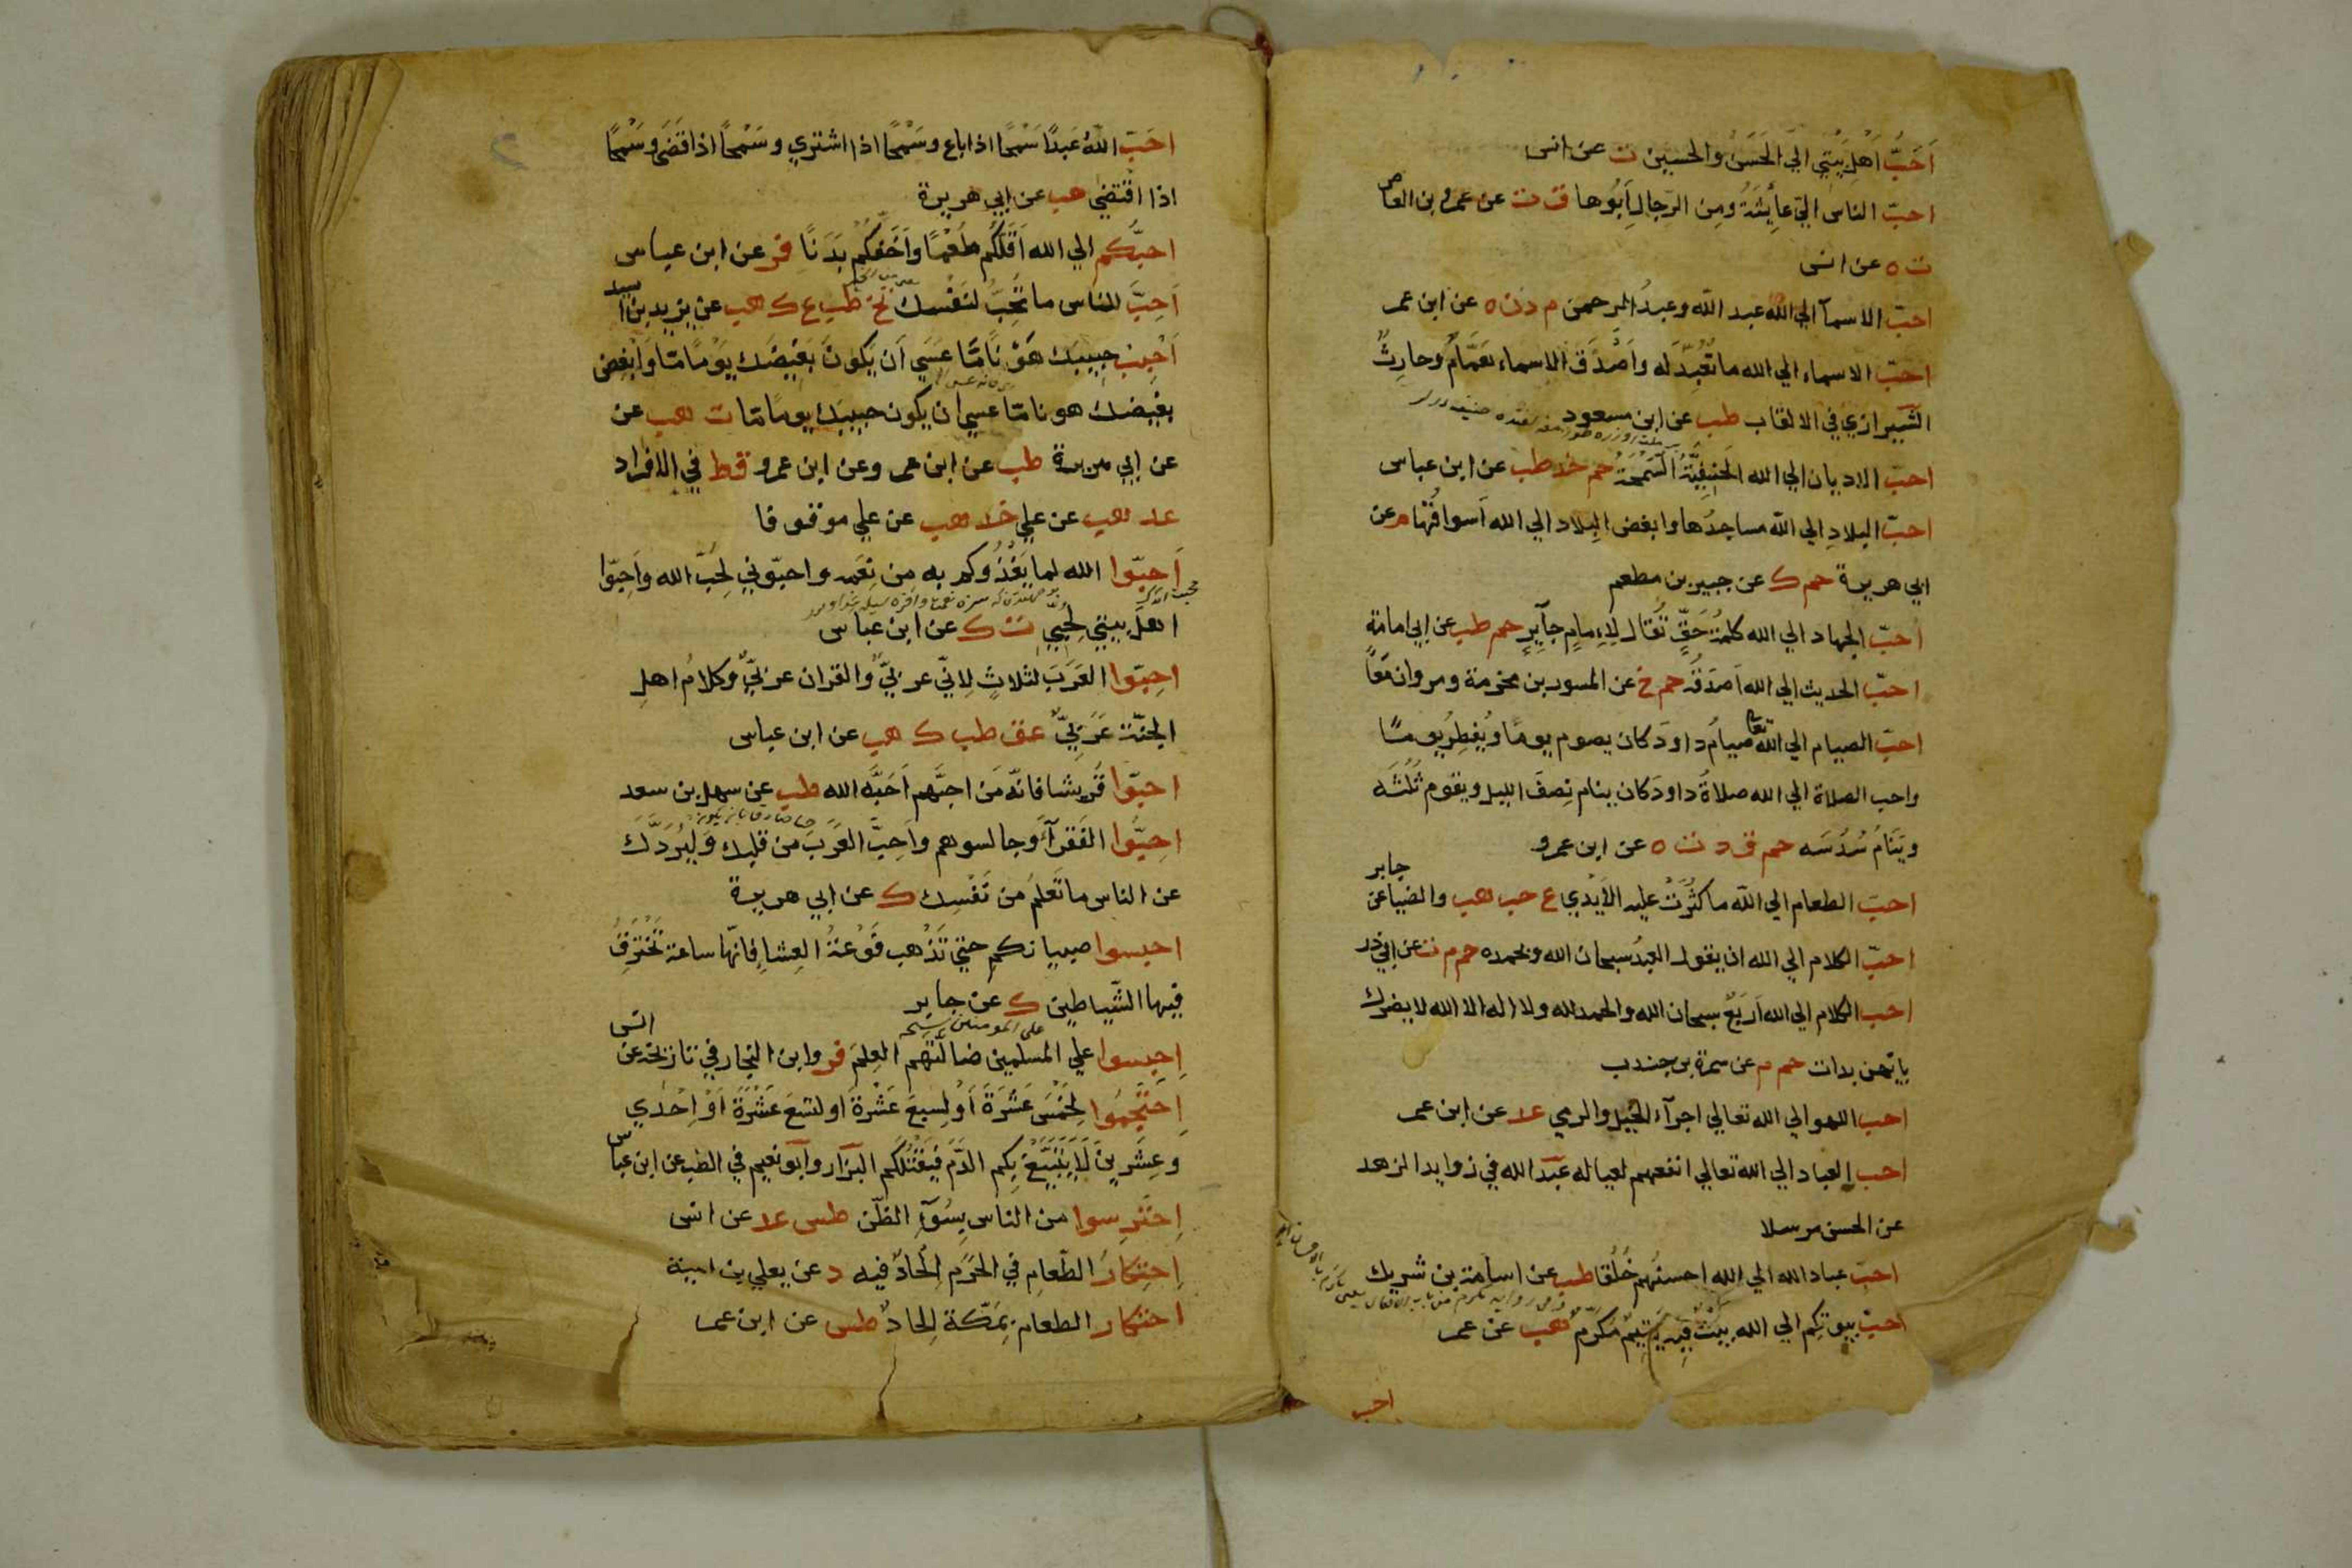 اَحَبُّ اَهْلِ بَيْتِي اليّ الحَسَنُ والحسين ت عن انس
احبّ الناس اليّ عايِشَةُ ومِن الرِّجالِ اَبُوها ق ت عن عمرو بن العاص
ت ه عن انس
احبّ الاسمآ الي الله عبد الله وعبدُ الرحمن م د ت ه عن ابن عمر
احبّ الاسماء الي الله ما تُعُبِّدَ له واَصْدَقُ الاسماء هَمَّامٌ وحارِثٌ
الشّيرازي في الالقاب طب عن ابن مسعود
احبّ الاديان الي الله الحَنِيفِيَّةُ السَّمْحَةُ حم خد طب عن ابن عباس
احبّ البلادِ الي الله مساجدُها وابغض البِلاد الي الله اَسواقُها م عن
ابي هريرة حم ك عن جبير بن مطعم
احبّ الجهاد الي الله كلمةُ حَقٍّ تُقال لِاِمامٍ جآيِرٍ حم طب عن ابي امامة
احبّ الحديث الي الله اَصدَقُه حم خ عن المسور بن مخرمة ومروان مَعًا
احبّ الصيام الي الله تعا صيامُ داودَ كان يصوم يومًا ويُفطِرُ يومًا
واحب الصلاة الي الله صلاةُ داودَ كان ينام نِصفَ الليل ويقوم ثُلُثَه
ويَنَامُ سُدُسَه حم ق د ت ه عن ابن عمرو
احبّ الطعام الي الله ما كثُرَتْ عليه الاَيْدِي ع حب هب والضيا عن جابر
احبّ الكلام الي الله ان يقول العبدُ سبحان الله وبحمده حم م ت عن ابي ذر
احب الكلام الي الله اَربَعٌ سبحان الله والحمد لله ولا اله الا الله لا يضرك
بايّهن بدات حم م عن سمرة بن جندب
احب اللهو الي الله تعالي اجرآء الخيل والرمي عد عن ابن عمر
احب العباد الي الله تعالي انفعهم لعياله عبد الله في زوايد الزهد
عن الحسن مرسلا
احبّ عباد الله الي الله احسنُهم خُلُقًا طب عن اسامة بن شريك
احبّ بيوتكم الي الله بيتٌ فِيه يَتِيمٌ مُكرَّمٌ هب عن عمر
احب
احَبّ اللّٰهُ عَبدًا سَمْحًا اذا باع وسَمْحًا اذا اشتري وسَمْحًا اذا قَضَى وسَمْحًا
اذا اقتضي هب عن ابي هريرة
احبُّكم الي الله اَقَلُّكُم طُعْمًا واَخَفُّكُم بَدَنًا فر عن ابن عباس
اَحِبَّ للناس ما تُحِبُّ لنَفْسك تخ طب ع ك هب عن يزيد بن اسيد
اَحْبِبْ حبِيبَك هَوْنًا مّا عَسَي اَن يكونَ بَغِيضَك يَوْمًا مّا وَاَبْغِض
بغيضك هونا مّا عسي ان يكون حبيبَك يومًا مّا ت هب عن
عن ابي هريرة طب عن ابن عمر وعن ابن عمرو قط في الافراد
عد هب عن علي خد هب عن علي موقوفا
اَحِبّوا الله لما يَغْذُوكم به من نِعَمه واحبّوني لِحُبّ الله واَحِبّوا
اهلَ بيتي لحُبِّي ت ك عن ابن عباس
احِبّوا العَرَبَ لثلاثٍ لِاَنّي عربيٌّ والقران عربيٌّ وكلامُ اهلِ
الجنّة عَرَبِيٌّ عق طب ك هب عن ابن عباس
احبّوا قُرَيشا فانّه مَن احبَّهم اَحَبَّه الله طب عن سهل بن سعد
احِبُّوا الفُقرآءَ وجالسوهم واَحِبَّ العَرَبَ من قلبك وليَرُدَّكَ
عن الناس ما تَعلمُ من نَفْسِك ك عن ابي هريرة
احبسوا صبيانكم حتي تَذْهب فَوْعَةُ العِشاِ فانّها ساعة تَخْتَرِقُ
فيها الشّياطين ك عن جابر
اِحبِسوا علي المسلمين ضالّتَهم العِلمَ فر وابن النجار في تاريخه عن انس
اِحْتَجِمُوا لِخَمْسَ عَشْرَةَ اَو لِسبعَ عَشْرَة او لتسعَ عَشْرَةَ اَوْ اِحْدي
وعِشرينَ لَا يَتَبَيَّغْ بِكم الدّمُ فيَقْتُلَكم البزّار وابو نعيم في الطب عن ابن عباس
اِحْتَرِسوا من الناس بِسُوْٓءِ الظّن طس عد عن انس
اِحتِكارُ الطّعامِ في الحَرَمِ اِلْحَادٌ فيه د عن يعلي بن امية
احتكار الطعام بِمَكّةَ اِلحادٌ طس عن ابن عمر